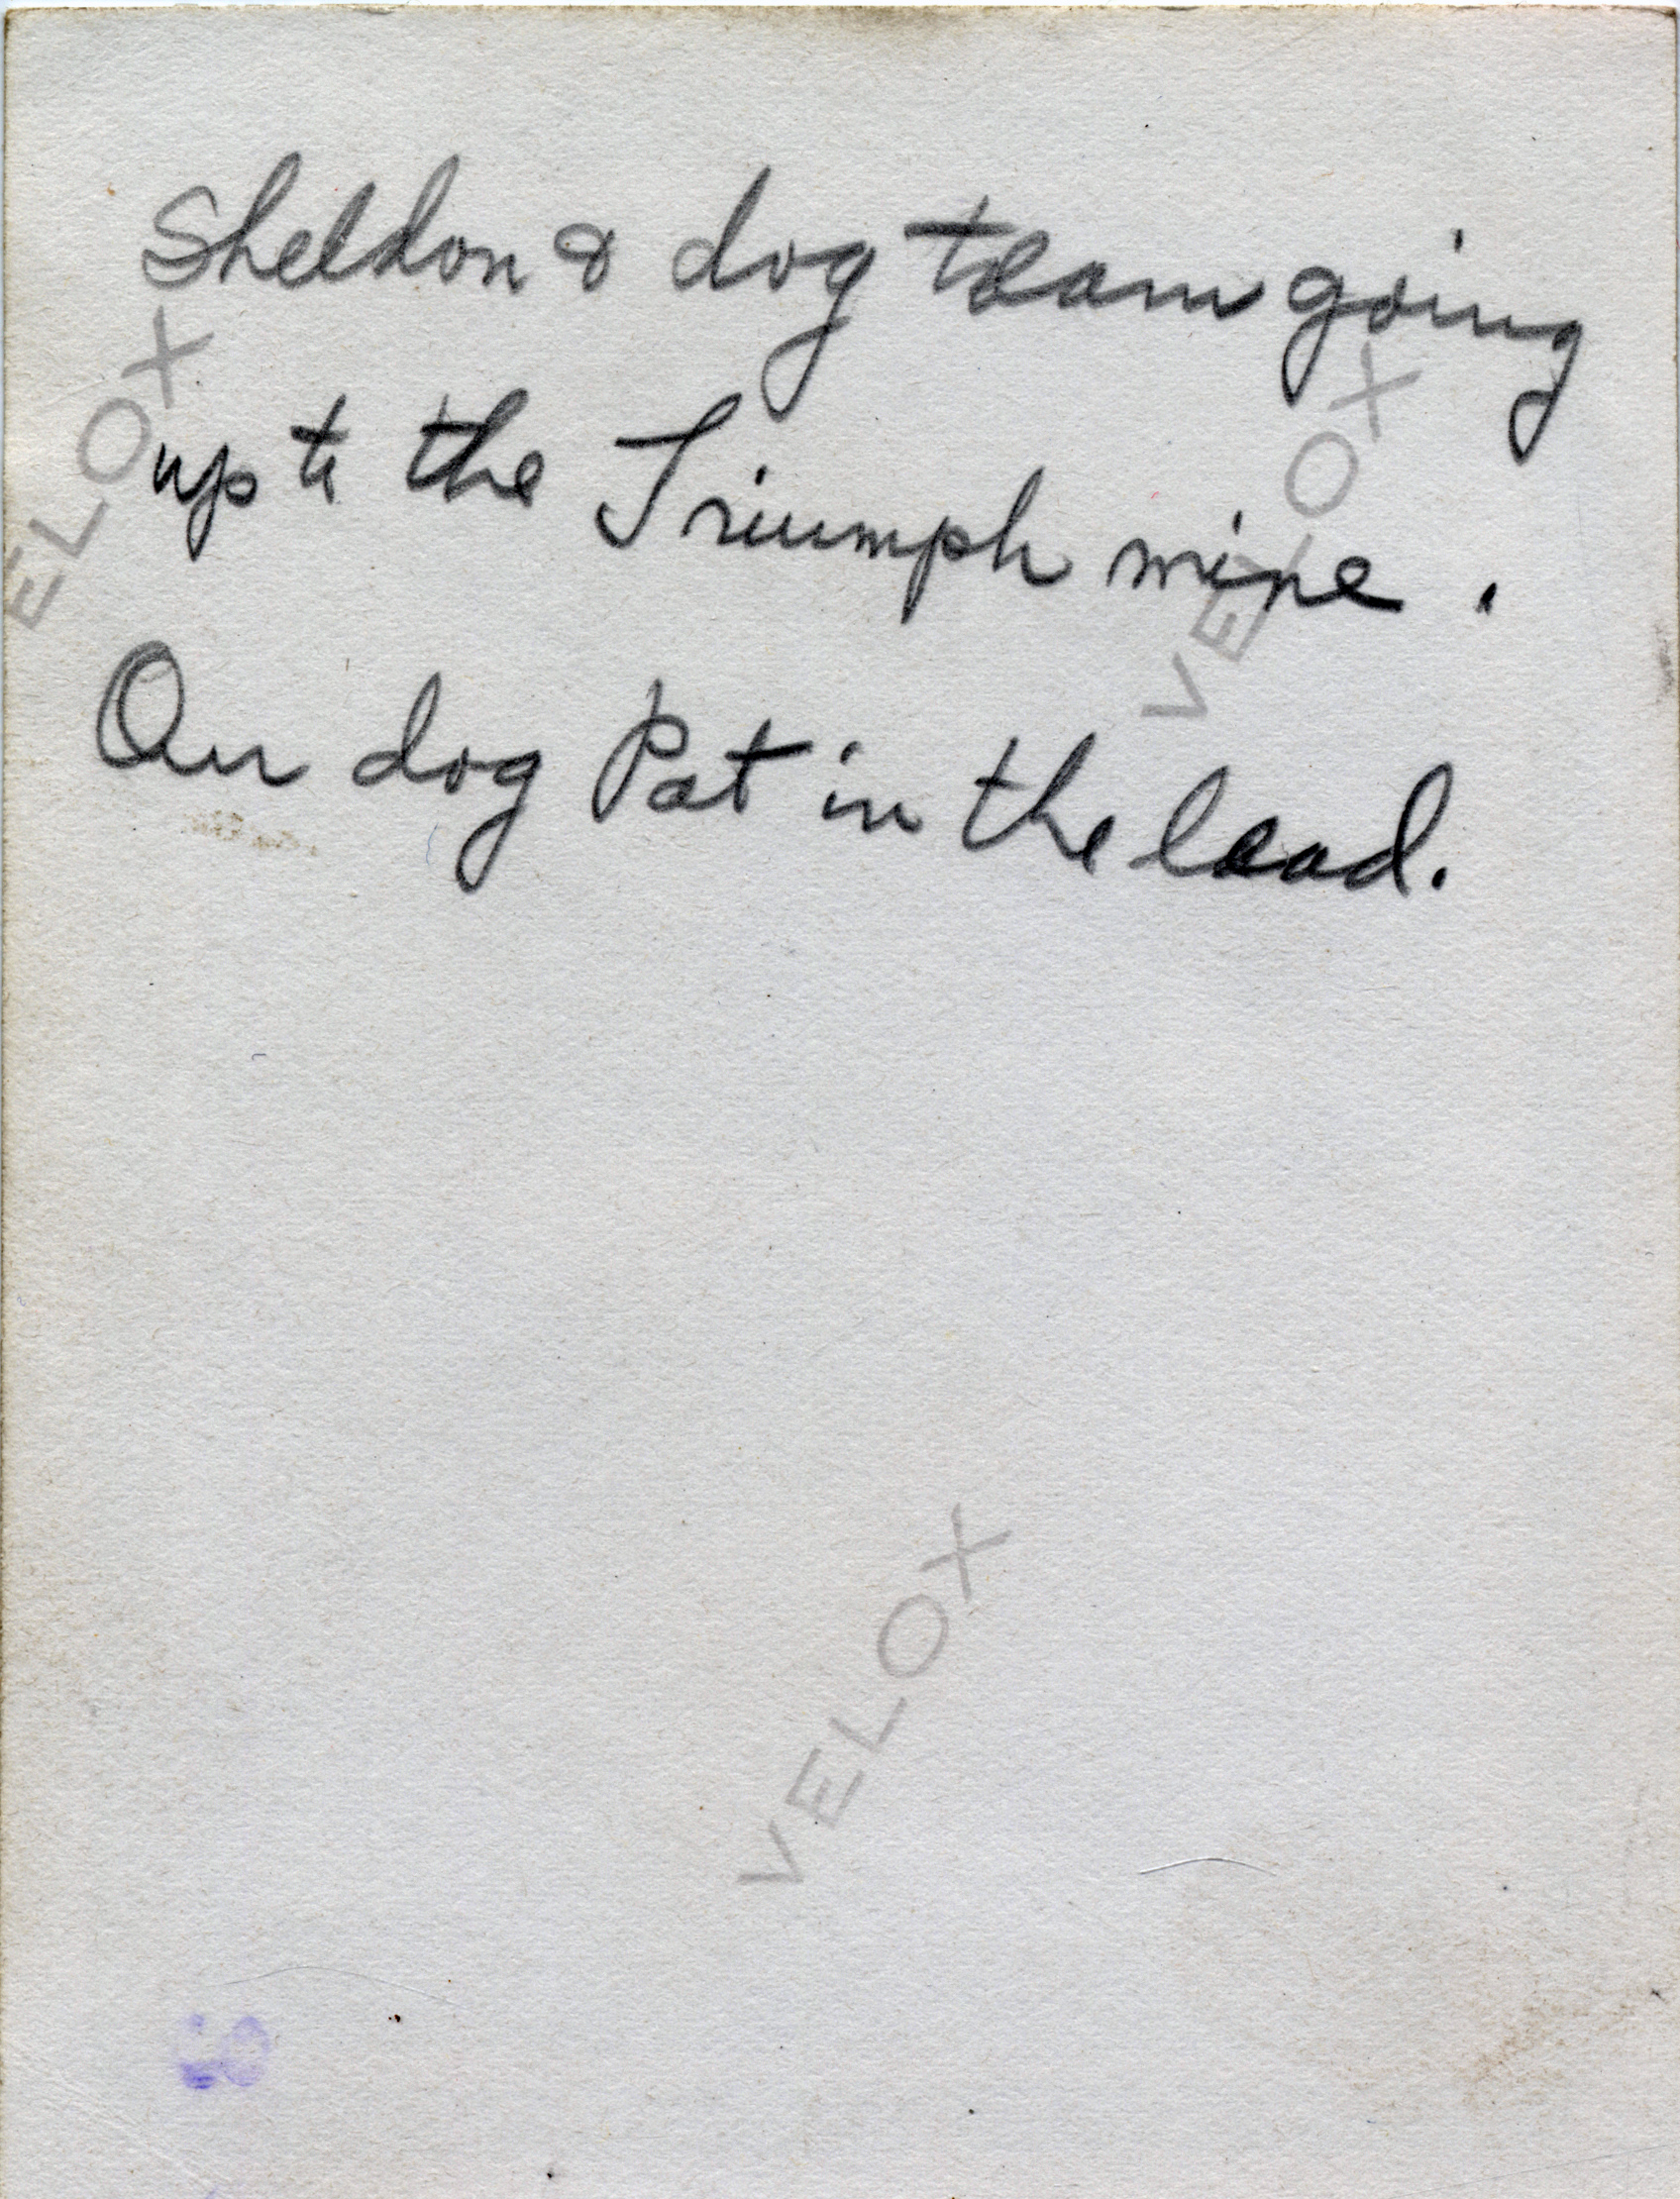 Sheldon & dog team going
up to the Triumph mine.
Our dog Pat in the lead.
ELOX
VELOX
VELOX